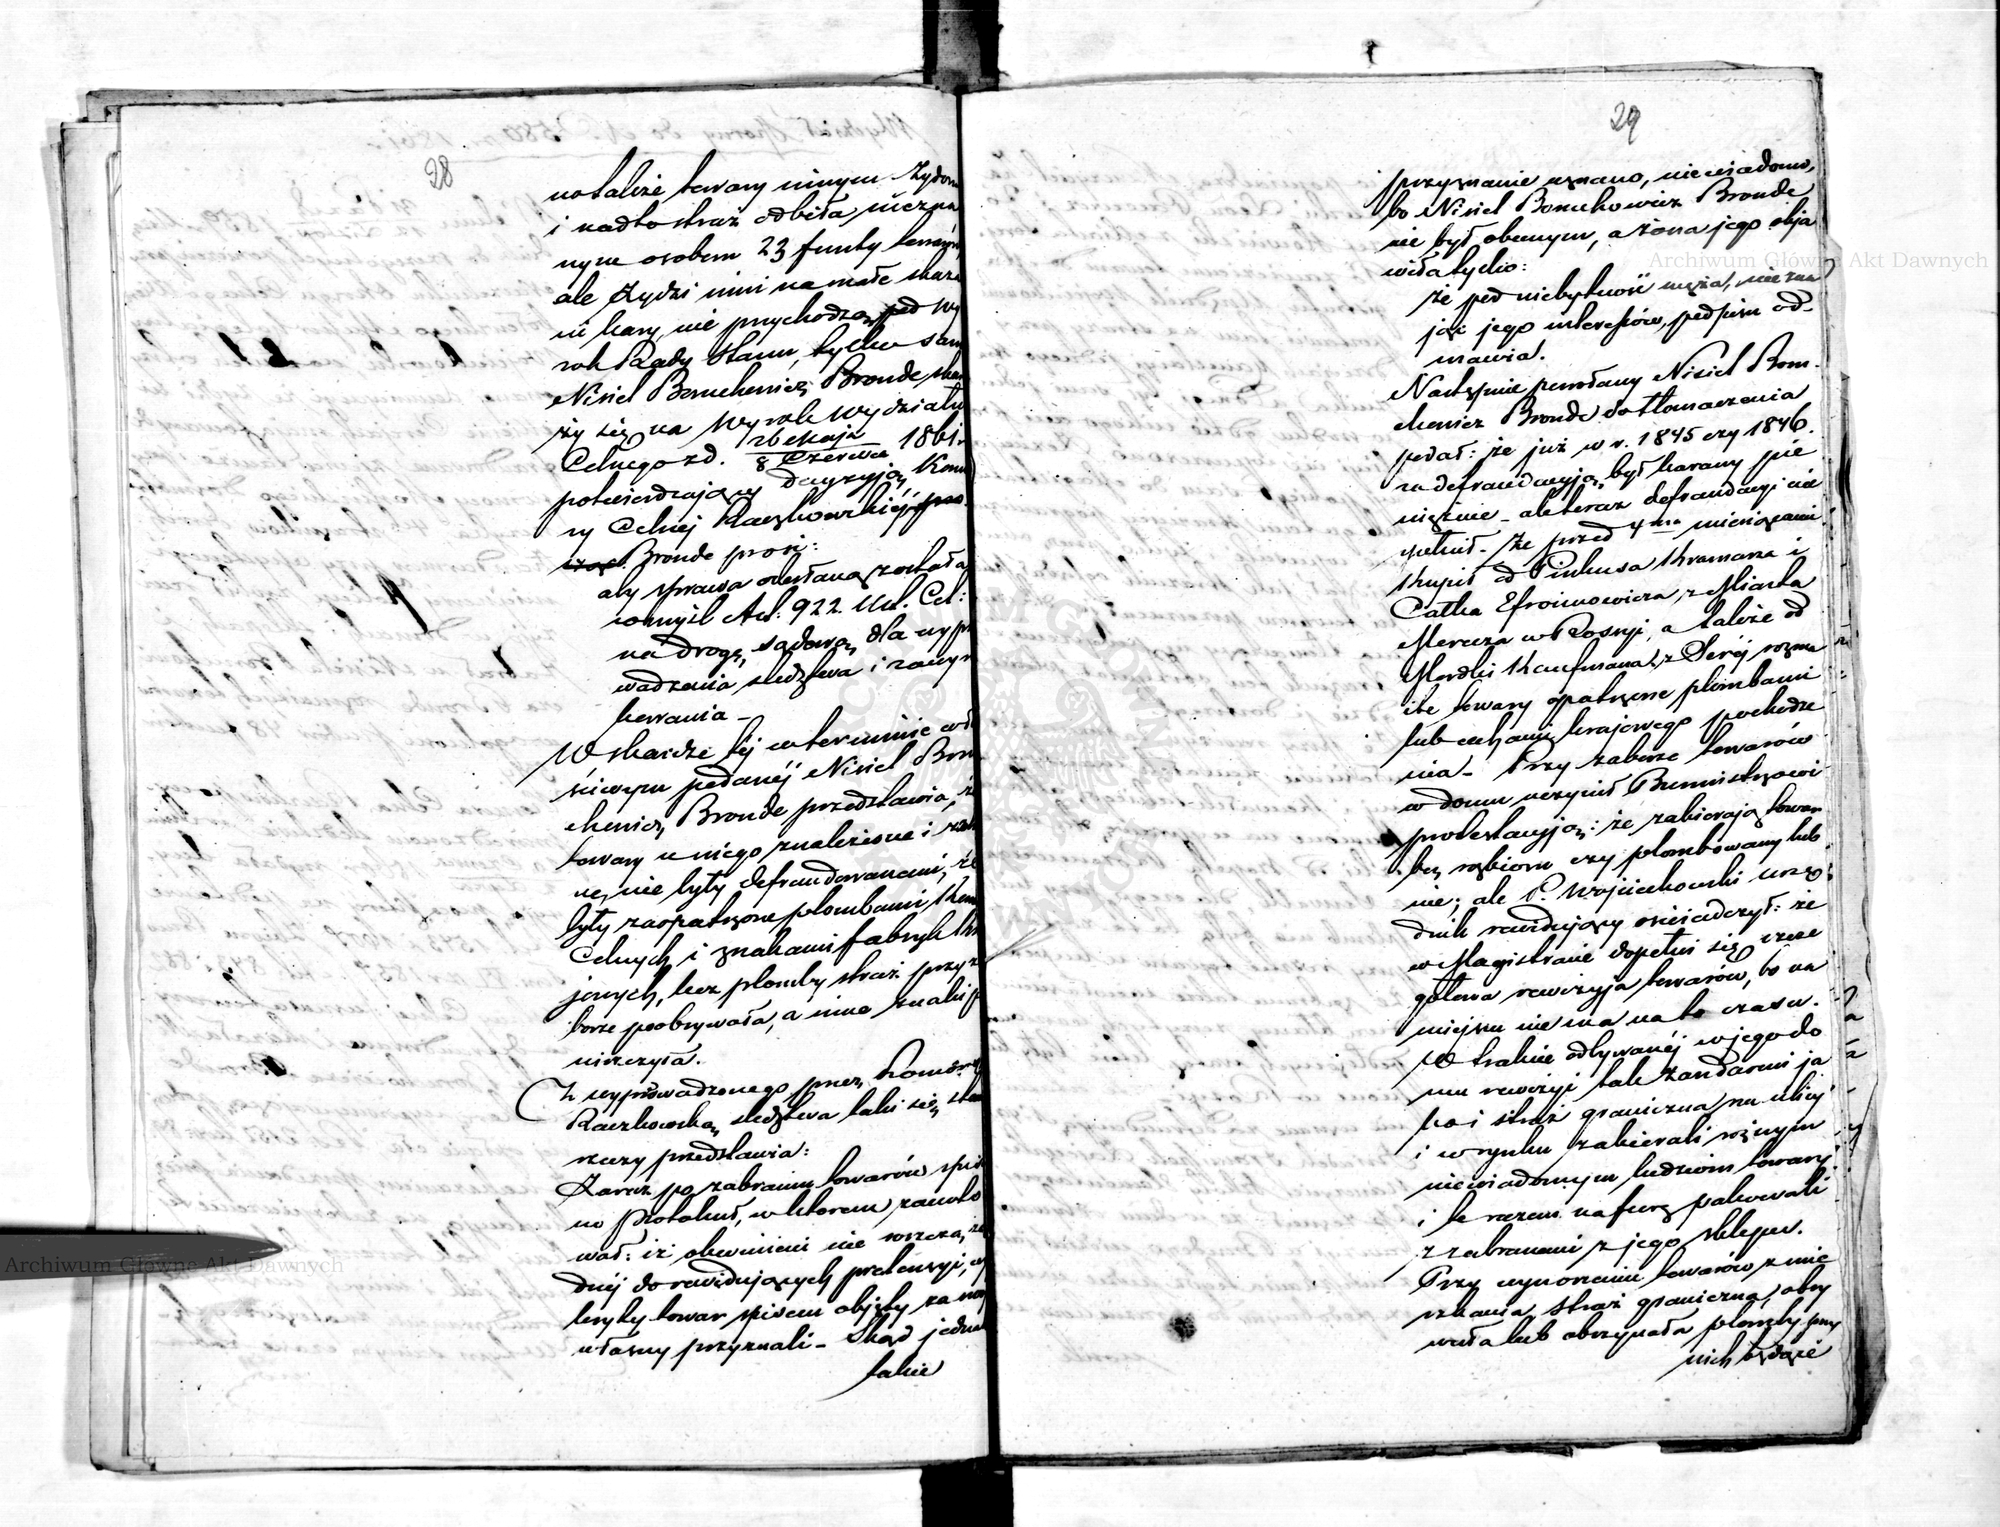 28
no także towary innym Żydom
i nadto straż odbiła niezna
nym osobom 23 funty herbaty
ale Żydzi inni na małe skaza
ni kary, nie przychodzą pod wy
rok Rady Stanu, tylko sam
Nisiel Boruchowicz Bronde skar
ży się na wyrok Wydziału
Celnego z d. 26 Maja / 8 Czerwca 1861 r.
potwierdzający decyzyją Komo
ry Celnej Raczkowskiej
Bronde prosi:
aby sprawa odesłaną została
w myśl Art: 922 Ust. Cel:
na drogę sądową dla wypro
wadzenia śledztwa i zawyro
kowania –
W skardze tej w terminie wła
ściwym podanej Nisiel Boru
chowicz Bronde przedstawia, że
towary u niego znalezione i zabra
ne, nie były defraudowanemi, że
były zaopatrzone plombami Komor
Celnych, i znakami fabryk kra
jowych, lecz plomby straż przy za
borze poobrywała, a inne znaki p
niszczyła.
Z wyprowadzonego przez Komorę
Raczkowską śledztwa taki się stan
rzeczy przedstawia:
Zaraz po zabraniu towarów spisa
no Protokuł, w którem zanoto
wał: iż obwinieni nie roszczą, ża
dnej do rewidujących pretensyi, wszy
tenyby towar spisem objęty za swój
własny przyznali – Skąd jednak
takie
29
przyznanie uznano, niewiadomo,
bo Nisiel Boruchowicz Bronde
nie był obecnym, a żona jego obja
wiła tylko:
że pod niebytność męża, nie zna
jąc jego interesów, podpisu od-
mawia.
Następnie powołany Nisiel Boru-
chowicz Bronde do tłomaczenia
podał: że już w r. 1845 czy 1846
za defraudacyją był karany pie
niężnie – ale teraz defraudacyi nie
pełnił. Że przed 4ma miesiącami
kupił od Pinkusa Kramarza i
Catka Efroimowicza, z Miasta
Merecza w Rossyi, a także od
Mordki Kaufmana, z Serej rozma
ite towary opatrzone plombami
lub cechami krajowego pochodze
nia – Przy zaborze towarów
w domu uczynił Burmistrzowi
protestacyją: że zabierają towar
bez rozbioru czy plombowany lub
nie; ale P. Wojciechowski urzę
dnik rewidujący oświadczył: że
w Magistracie dopełni się szcze
gółowa rewizyja towarów, bo na
miejscu nie ma na to czasu.
W trakcie odbywanej w jego do
mu rewizyi tak żandarmi ja
ko i straż graniczna na ulicy
i w rynku zabierali rożnym
niewiadomym ludziom towary
i te razem na furę pakowali
z zabranemi z jego sklepu.
Przy wynoszeniu towarów z mie
szkania, straż graniczna, obry
wała lub obrzynała plomby przy
nich będące
Archiwum Główne Akt Dawnych
Archiwum Główne Akt Dawnych